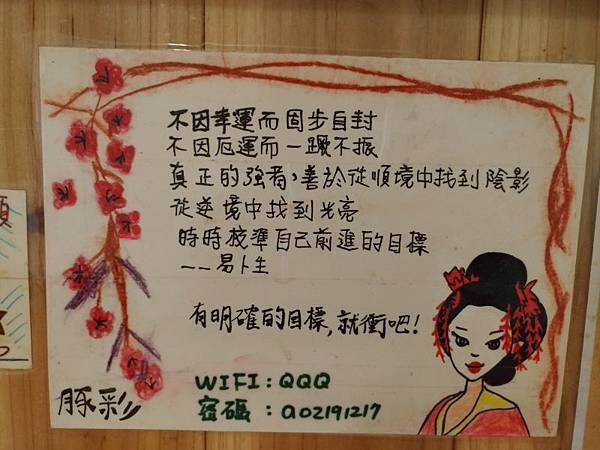 不因幸運而固步自封
不因厄運而一蹶不振
真正的強者,善於從順境中找到陰影
從逆境中找到光亮
時時校準自己前進的目標
——易卜生
有明確的目標,就衝吧!
WIFI:QQQ
密碼:a02191217
豚彩